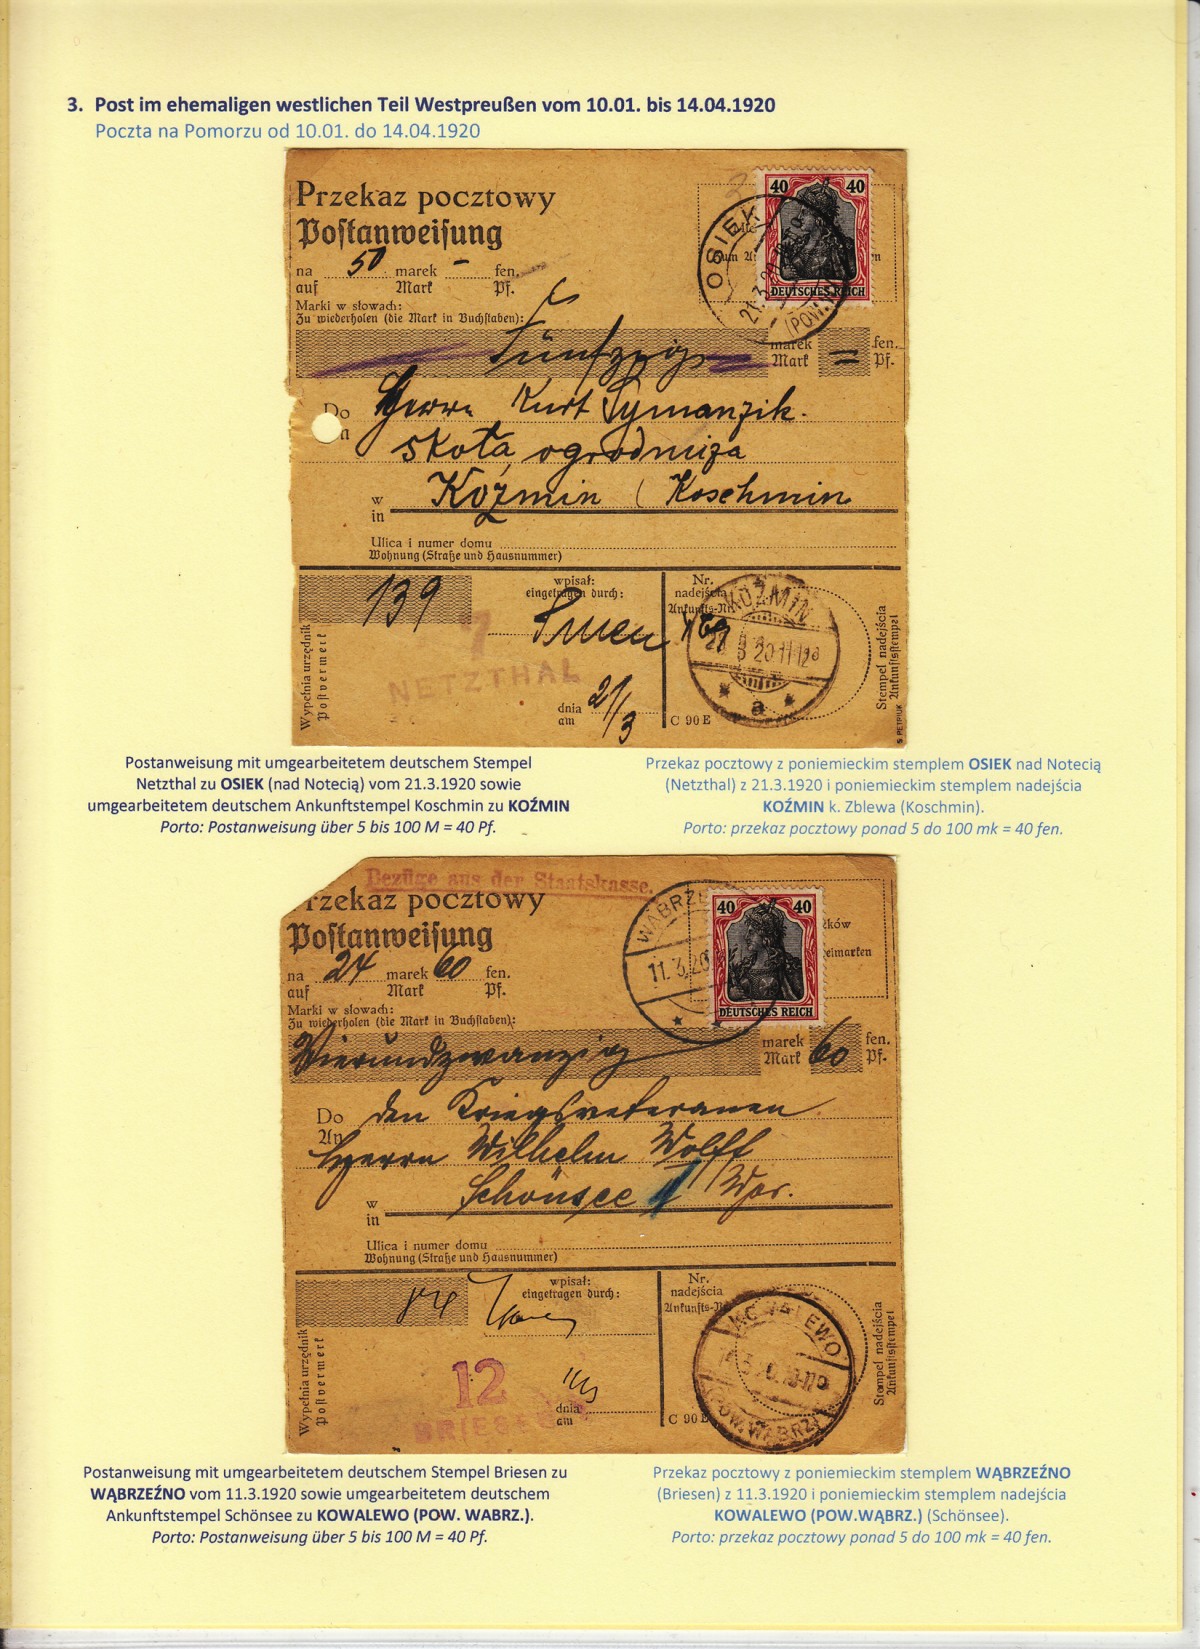 3. Post im ehemaligen westlichen Teil Westpreußen vom 10.01. bis 14.04.1920
Poczta na Pomorzu od 10.01. do 14.04.1920
Przekaz pocztowy
Postanweisung
40 40
DEUTSCHES REICH
OSIEK
21.3.20
(POW.
na 50 marek - fen.
auf Mark Pf.
Marki w słowach:
Zu wiederholen (die Mark in Buchstaben):
Fünfzig marek = fen.
Mark Pf.
Do Herrn Kurt Symanzik.
skoła ogrodniza
w Koźmin (Koschmin
in
Ulica i numer domu
Wohnung (Straße und Hausnummer)
139
wpisał:
eingetragen durch:
Nr. nadejścia
Ankunfts-Nr.
KOŹMIN
3 20 11-12
a
7
NETZTHAL
dnia 21/3
am
C 90 E
Wypełnia urzędnik
Postvermerk
Stempel nadejścia
Ankunftsstempel
Postanweisung mit umgearbeitetem deutschem Stempel
Netzthal zu OSIEK (nad Notecią) vom 21.3.1920 sowie
umgearbeitetem deutschem Ankunftstempel Koschmin zu KOŹMIN
Porto: Postanweisung über 5 bis 100 M = 40 Pf.
Przekaz pocztowy z poniemieckim stemplem OSIEK nad Notecią
(Netzthal) z 21.3.1920 i poniemieckim stemplem nadejścia
KOŹMIN k. Zblewa (Koschmin).
Porto: przekaz pocztowy ponad 5 do 100 mk = 40 fen.
Bezüge aus der Staatskasse.
rzekaz pocztowy
Postanweisung
WĄBRZE
11.3.20
40 40
DEUTSCHES REICH
na 24 marek 60 fen.
auf Mark Pf.
Marki w słowach:
Zu wiederholen (die Mark in Buchstaben):
Vierundzwanzig marek 60 fen.
Mark Pf.
Do den Kriegsveteranen
An Herrn Wilhelm Wolff
w Schönsee Wpr.
in
Ulica i numer domu
Wohnung (Straße und Hausnummer)
wpisał:
eingetragen durch:
Nr. nadejścia
Ankunfts-Nr.
KOWALEWO
(POW. WĄBRZ.)
12
BRIESEN
dnia
am
C 90 E
Wypełnia urzędnik
Postvermerk
Stempel nadejścia
Ankunftsstempel
Postanweisung mit umgearbeitetem deutschem Stempel Briesen zu
WĄBRZEŹNO vom 11.3.1920 sowie umgearbeitetem deutschem
Ankunftstempel Schönsee zu KOWALEWO (POW. WABRZ.).
Porto: Postanweisung über 5 bis 100 M = 40 Pf.
Przekaz pocztowy z poniemieckim stemplem WĄBRZEŹNO
(Briesen) z 11.3.1920 i poniemieckim stemplem nadejścia
KOWALEWO (POW.WĄBRZ.) (Schönsee).
Porto: przekaz pocztowy ponad 5 do 100 mk = 40 fen.